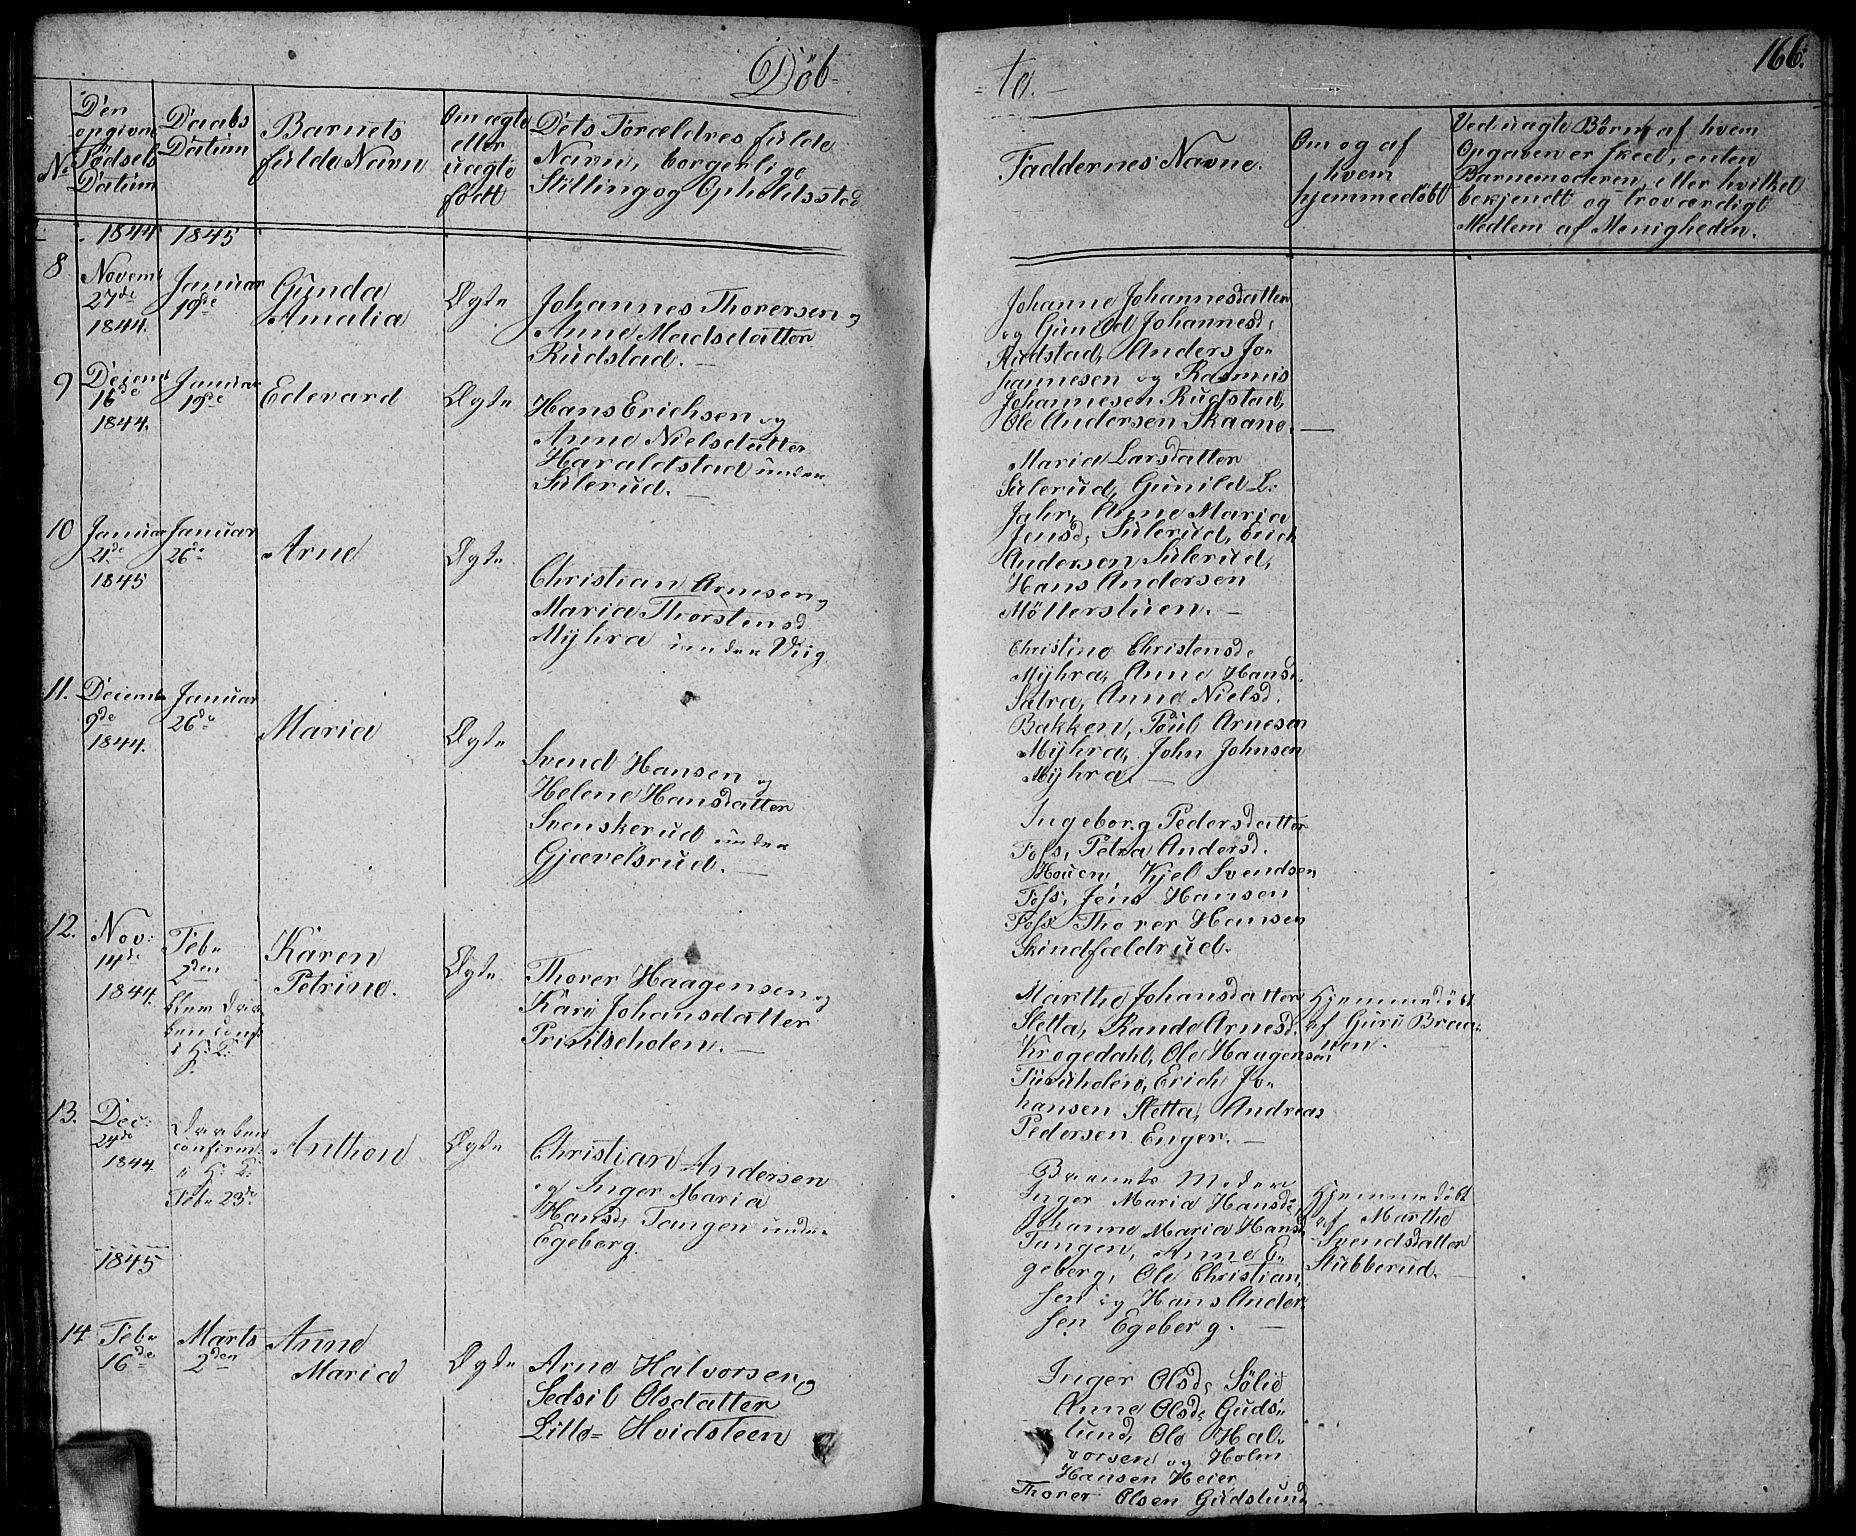 Döb-
-te.
166.
No
Den opgivne Fødsels Datum
Daabs Datum
Barnets fulde Navn
Om ægte eller uægte født
Dets Forældres fulde Navn, borgerlige Stilling og Opholdssted
Faddernes Navne.
Om og af hvem hjemmedöbt
Ved uægte Børn, af hvem Opgaven er skeed, enten Barnemoderen, eller hvilket bekjendt og troværdigt Medlem af Menigheden.
1844 1845
8
Novemb
27de
1844.
Januar
19de
Gunda
Amalia
Ægte
Johannes Thorersen og
Anne Madsdatter
Rudstad.
Johanne Johannesdatter
og Gunild Johannesd:
Rudstad, Anders Jo-
hannesen og Rasmus
Johannesen Rudstad,
Ole Andersen Skaane.
9
Decemb
16de
1844.
Januar
19de
Edevard
Ægte
Hans Erichsen og
Anne Nielsdatter
Haraldstad under
Sulerud.
Maria Larsdatter
Sulerud, Gunild L:
Jahr, Anne Maria
Jensd, Sulerud, Erich
Andersen Sulerud,
Hans Andersen
Möllerstuen.
10
Januar
21de
1845
Januar
26de
Arne
Ægte
Christian Arnesen og
Maria Thorstensd
Myhra under Viig
Christine Christensd:
Myhra, Anne Hansd.
Sætra, Anne Nielsd.
Bakken, Poul Arnesen
Myhra, John Johnsen
Myhra.
11.
Decemb
9de
1844.
Januar
26de
Maria
Ægte
Svend Hansen og
Helene Hansdatter
Svenskerud under
Gjævelsrud.
Ingeborg Pedersdatter
Foss, Petra Andersd.
Houen Kjel Svendsen
Foss, Jens Hansen
Foss Thorer Hansen
Skindfældrud.
12.
Nov:
14de
1844.
Feb:
2den
blev Daa-
ben conf:
i H: D:
Karen
Petrine.
Ægte
Thorer Haagensen og
Kari Johansdatter
Printseholen.
Marthe Johansdatter
Sletta, Rande Arnesd.
Krogedahl, Ole Haagensen
Furuholen, Erich Jo-
hansen Sletta, Andreas
Pedersen Enger.
Hjemmedöbt
af Guri Braa-
nen.
13.
Dec:
24de
1844.
Daaben
confirm:
i H: D:
Feb: 23de
Anthon
Ægte
Christian Andersen
og Inger Maria
Hansd: Tangen under
Egeberg.
Barnets Moder
Inger Maria Hansd:
Johanne Maria Hansd
Tangen, Anne E-
geberg, Ole Christian-
sen og Hans Ander-
sen Egeberg.
Hjemmedöbt
af Marthe
Svendsdatter
Stubberud.
1845
14
Feb:
16de
Marts
2den
Anne
Maria
Ægte
Arne Halvorsen og
Sedsil Olsdatter
Lille Hvidsteen
Inger Olsd: Sölie
Anne Olsd: Guds-
lund, Ole Hal-
vorsen og Holm
Hansen Heier
Thorer Olsen Gudslund